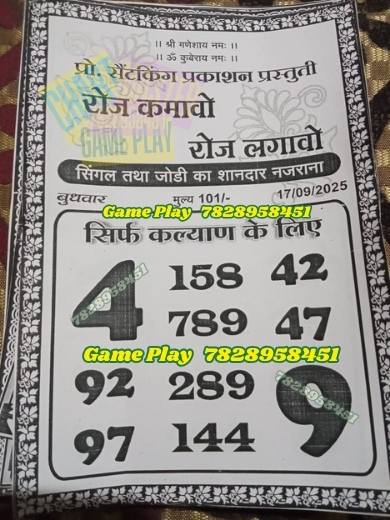 ।। श्री गणेशाय नमः ।।
।। ॐ कुबेराय नमः ।।
प्रो. सैंटकिंग प्रकाशन प्रस्तुती
रोज कमावो
GAME PLAY
रोज लगावो
सिंगल तथा जोडी का शानदार नजराना
बुधवार मूल्य 101/- 17/09/2025
Game Play 7828958451
सिर्फ कल्याण के लिए
4 158 42
7828958451
789 47
Game Play 7828958451
92 289 9
7828958451
97 144